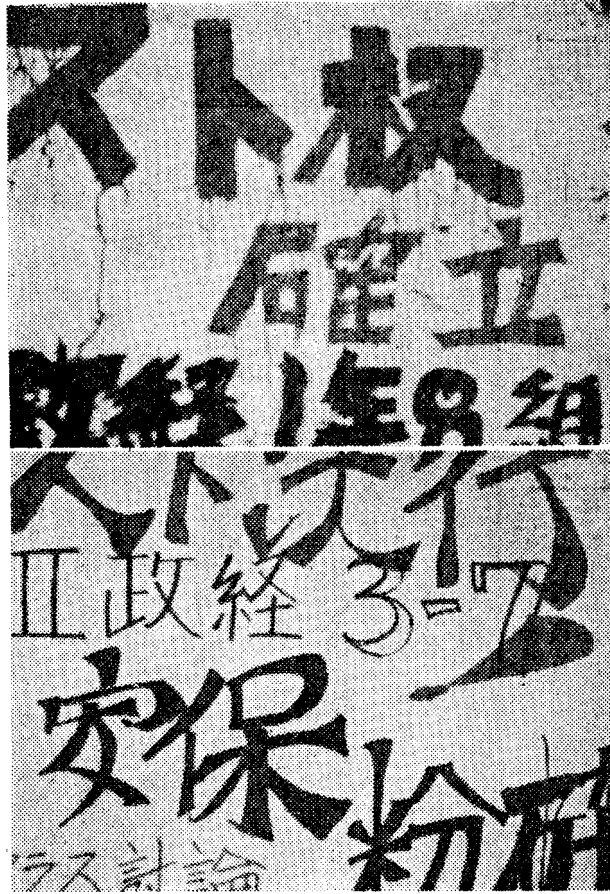 スト権
確立
政経1年8組
スト実行
II政経 3-7
安保
粉砕
クラス討論